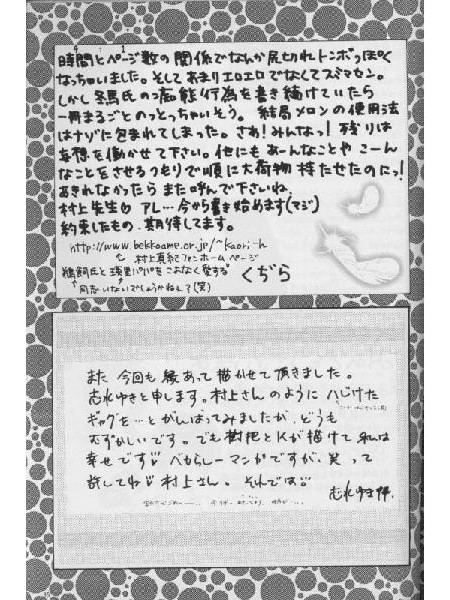 時間とページ数の関係でなんか尻切れトンボっぽく
なっちゃいました。そしてあまりエロエロでなくてスミマセン。
しかし 氏の 行為を書き続けていたら
一冊まるごとのっとっちゃいそう。結局メロンの使用法
はナゾに包まれてしまった。さあ!みんなっ!残りは
妄想を働かせて下さい。他にもあーんなことやこーん
なことをさせるつもりで順に大荷物持たせたのにっ!
あきれなかったらまた呼んで下さいね。
村上先生 アレ…今から書き始めます(マジ)
約束したもの、期待してます。
http://www.bekkoame.or.jp/~kaori-h
村上真紀ファンホームページ
鵜飼氏と をこよなく愛する くぢら
(笑)
また今回も縁あって描かせて頂きました。
むれゆきと申します。村上さんのようにハじけた
ギャグを…とがんばってみましたが、どうも
むずかしいです。でも樹把とKが描けて私は
幸せです♡ べからしーマンガですが、笑って
許してね♡村上さん。それでは